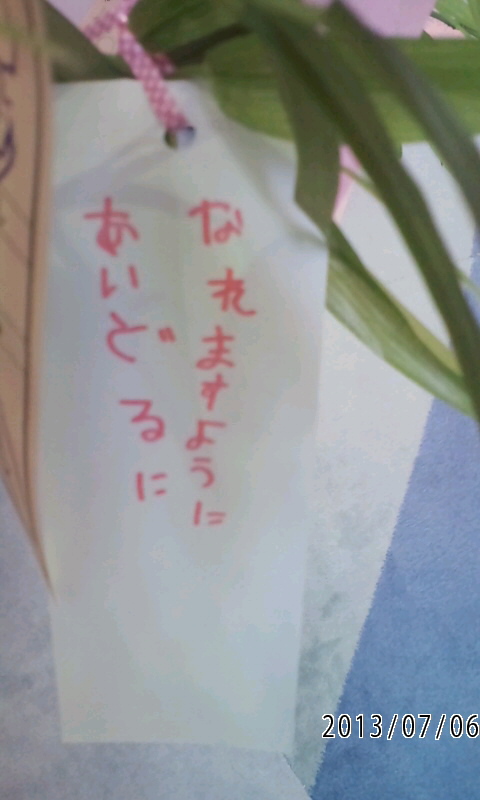 あいどるに
なれますように
2013/07/06